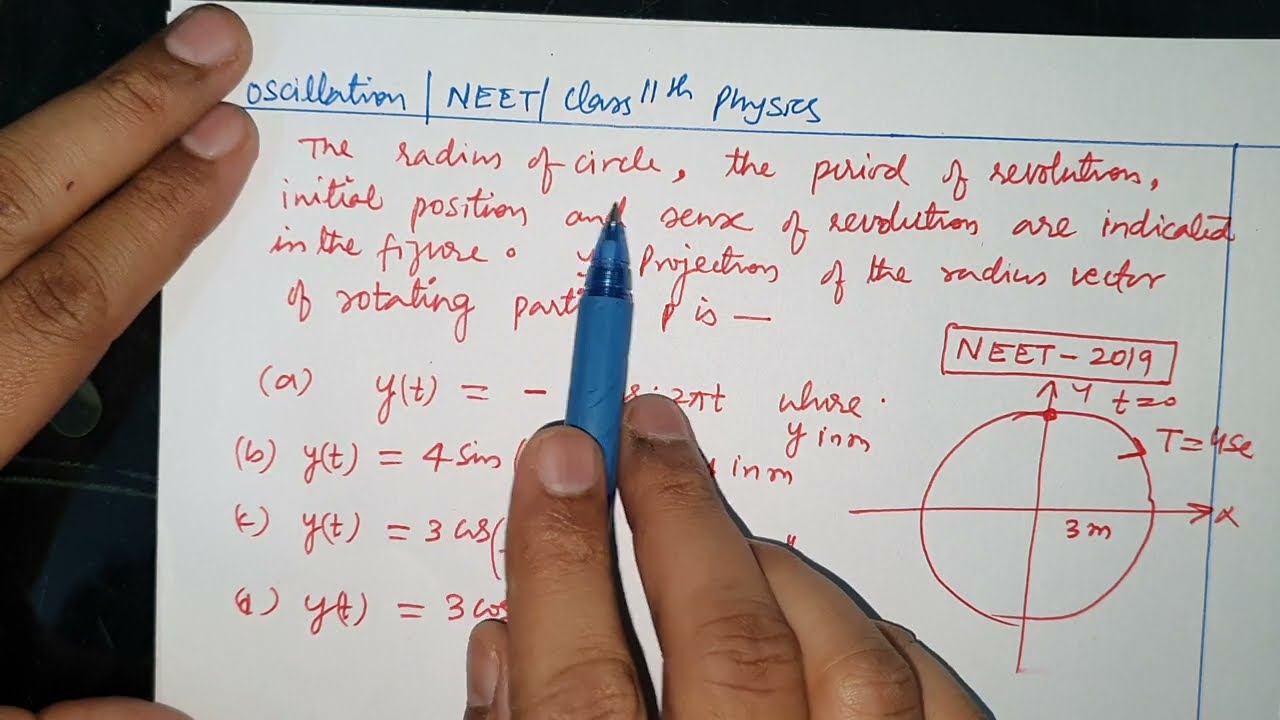 oscillation | NEET/ Class 11th Physics
The radius of circle, the period of revolution,
initial position and sense of revolution are indicated
in the figure. y Projection of the radius vector
of rotating P is —
NEET - 2019
(a) y(t) = - 2πt where
y in m
(b) y(t) = 4 sin( in m
(c) y(t) = 3 cos( "
(d) y(t) = 3 cos
Y t=0
T = 4se
x
3m